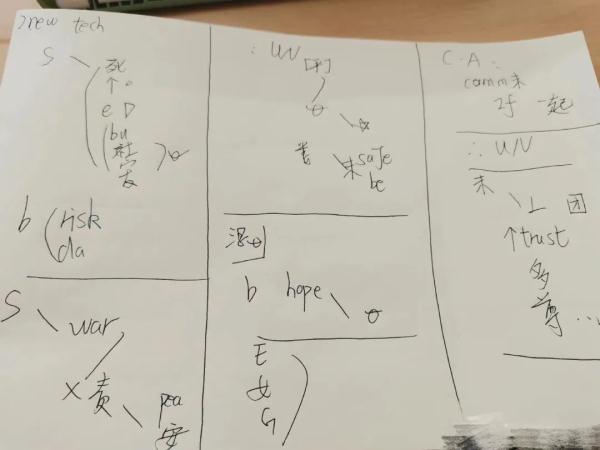 new tech
S
死
个。
e D
bu
社
安
b risk
da
S
war
X 责
pea
安
∴ UN
未 safe
be
b hope
E
女
G
C.A:
comm未
2f 一起
∴ UN
未
上 团
↑trust
多
尊...